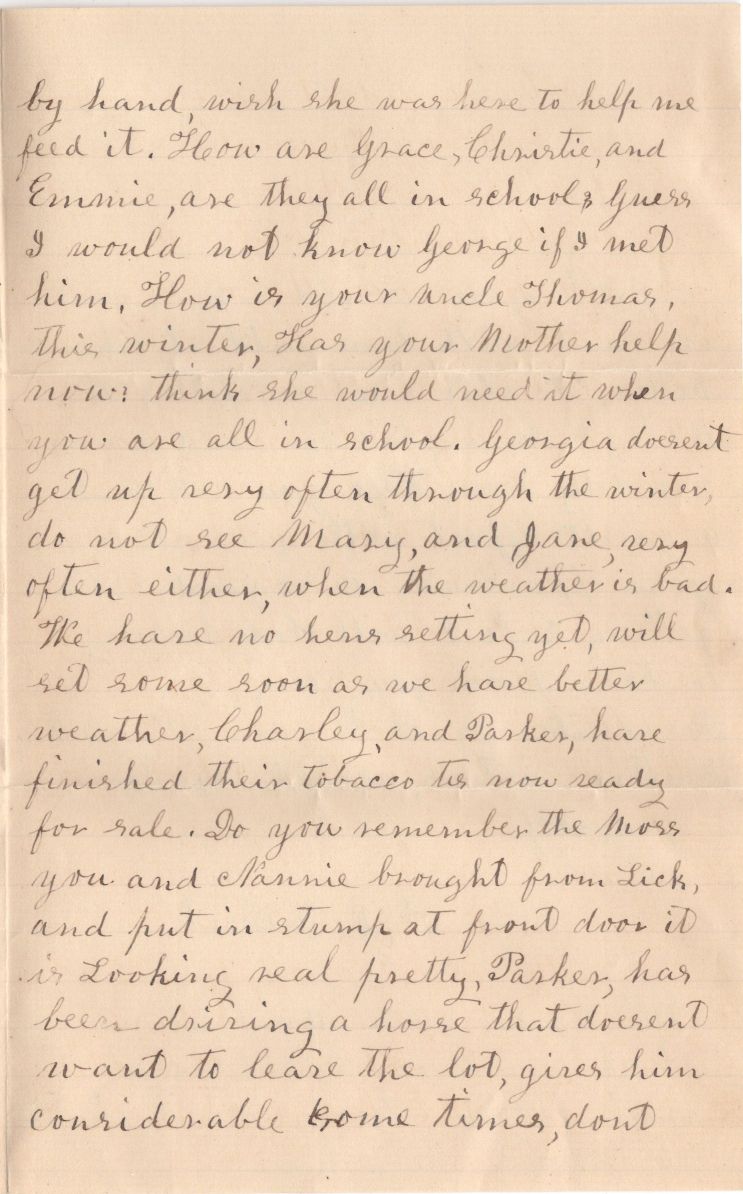 by hand, wish she was here to help me
feed it. How are Grace, Christie, and
Emmie, are they all in school? Guess
I would not know George if I met
him. How is your uncle Thomas,
this winter, Has your Mother help
now? think she would need it when
you are all in school. Georgia doesent
get up very often through the winter,
do not see Mary, and Jane, very
often either, when the weather is bad.
We have no hens setting yet, will
set some soon as we have better
weather, Charley, and Parker, have
finished their tobacco tis now ready
for sale. Do you remember the Moss
you and Nannie brought from Lick,
and put in stump at front door it
is Looking real pretty, Parker, has
been driving a horse that doesent
want to leave the lot, gives him
considerable some times, dont